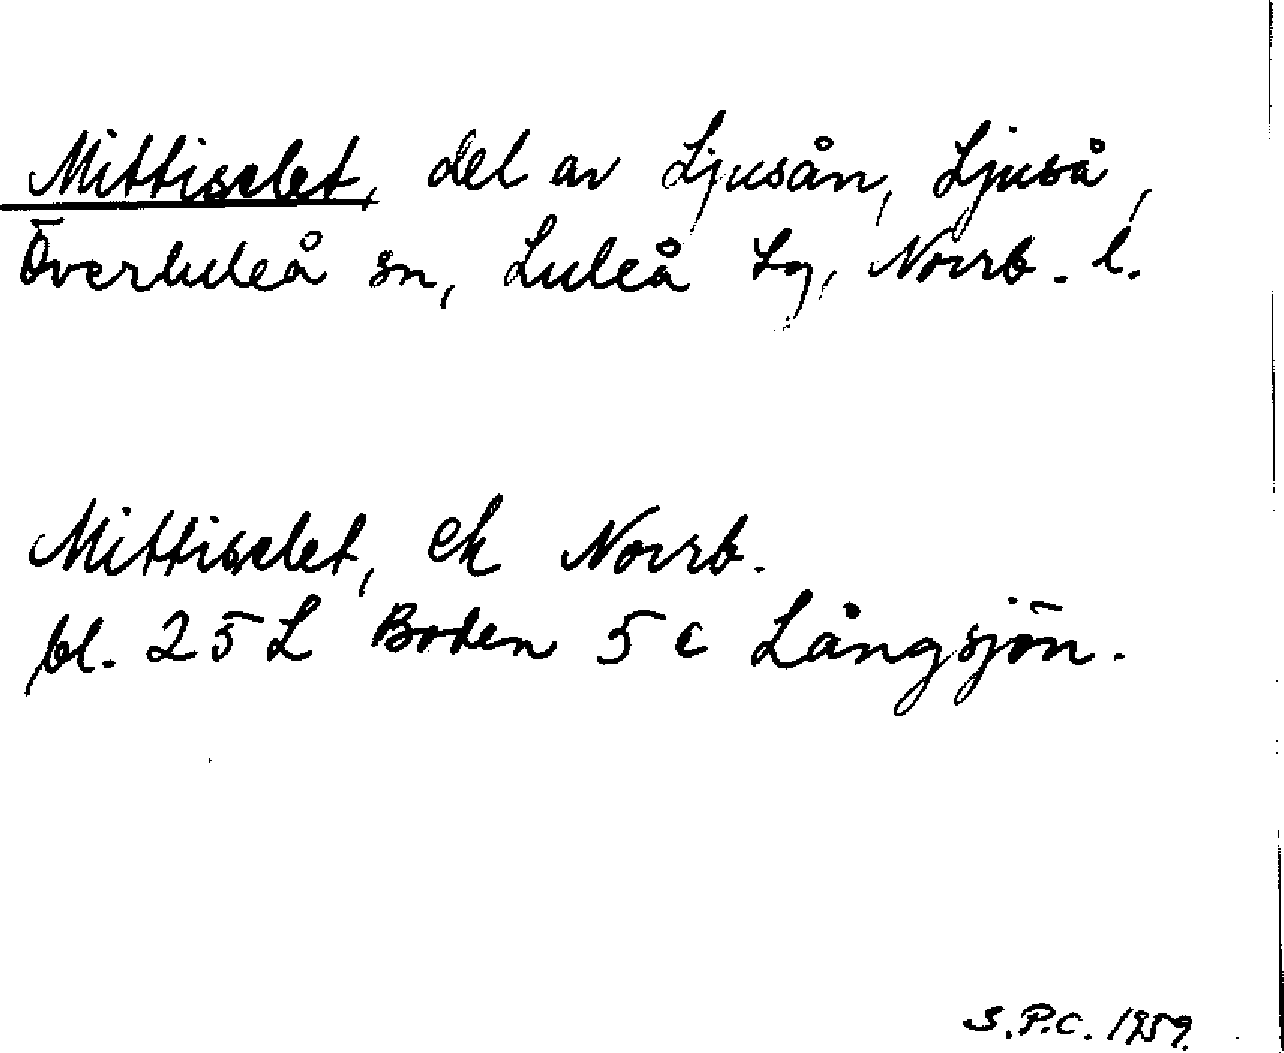 Mittiselet, del av Ljusån, Ljuså,
Överluleå sn, Luleå tg, Norrb. l.
Mittiselet, ek Norrb.
bl. 25 L Boden 5 c Långsjön.
S.P.C. 1959.